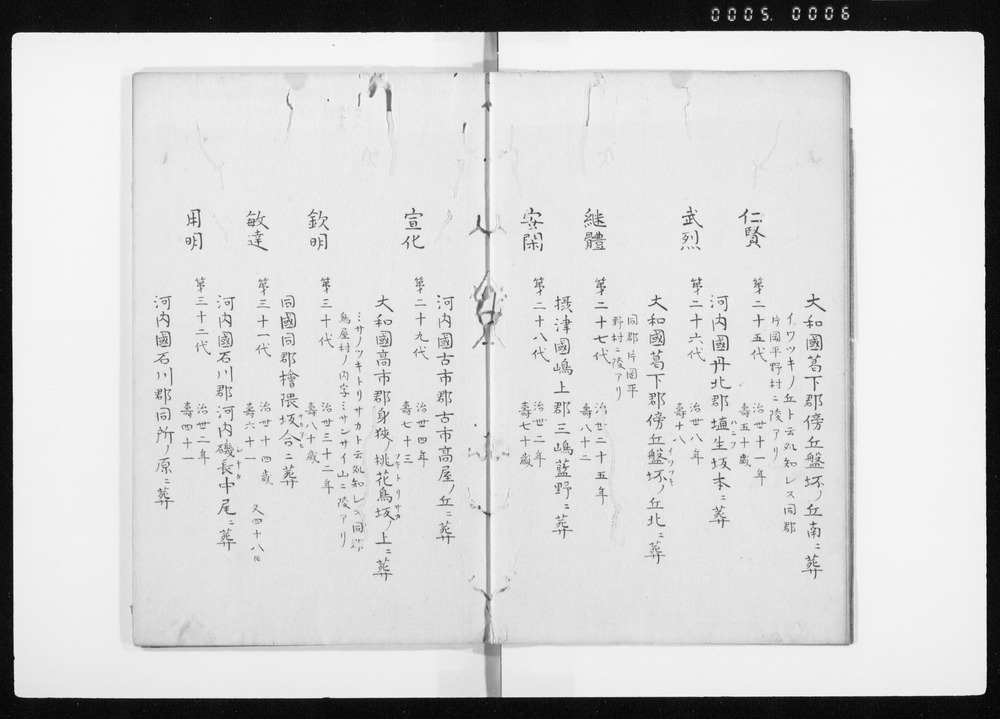 0005. 0006
大和國葛下郡傍丘盤坏ノ丘南ニ葬
イワツキノ丘ト云処知レス同郡
片岡平野村ニ陵アリ
仁賢
第二十五代
治世十一年
壽五十歳
河内國丹北郡埴生坂本ニ葬
ハニフ
武烈
第二十六代
治世八年
壽十八
大和國葛下郡傍丘盤坏ノ丘北ニ葬
イワツキ
同郡片岡平
野村ニ陵アリ
継體
第二十七代
治世二十五年
壽八十二
摂津國嶋上郡三嶋藍野ニ葬
安閑
第二十八代
治世二年
壽七十歳
河内國古市郡古市高屋ノ丘ニ葬
宣化
第二十九代
治世四年
壽七十三
大和國高市郡身狹ノ桃花鳥坂ノ上ニ葬
ツキトリサカ
ミサノツキトリサカト云処知レス同郡
鳥屋村ノ内字ミサンサイ山ニ陵アリ
欽明
第三十代
治世三十二年
壽八十歳
同國同郡檜隈坂合ニ葬
サカアヒ
敏達
第三十一代
治世十四歳
壽六十一
又四十八トモ
河内國石川郡河内磯長中尾ニ葬
シナガ
用明
第三十二代
治世二年
壽四十一
河内國石川郡同所ノ原ニ葬